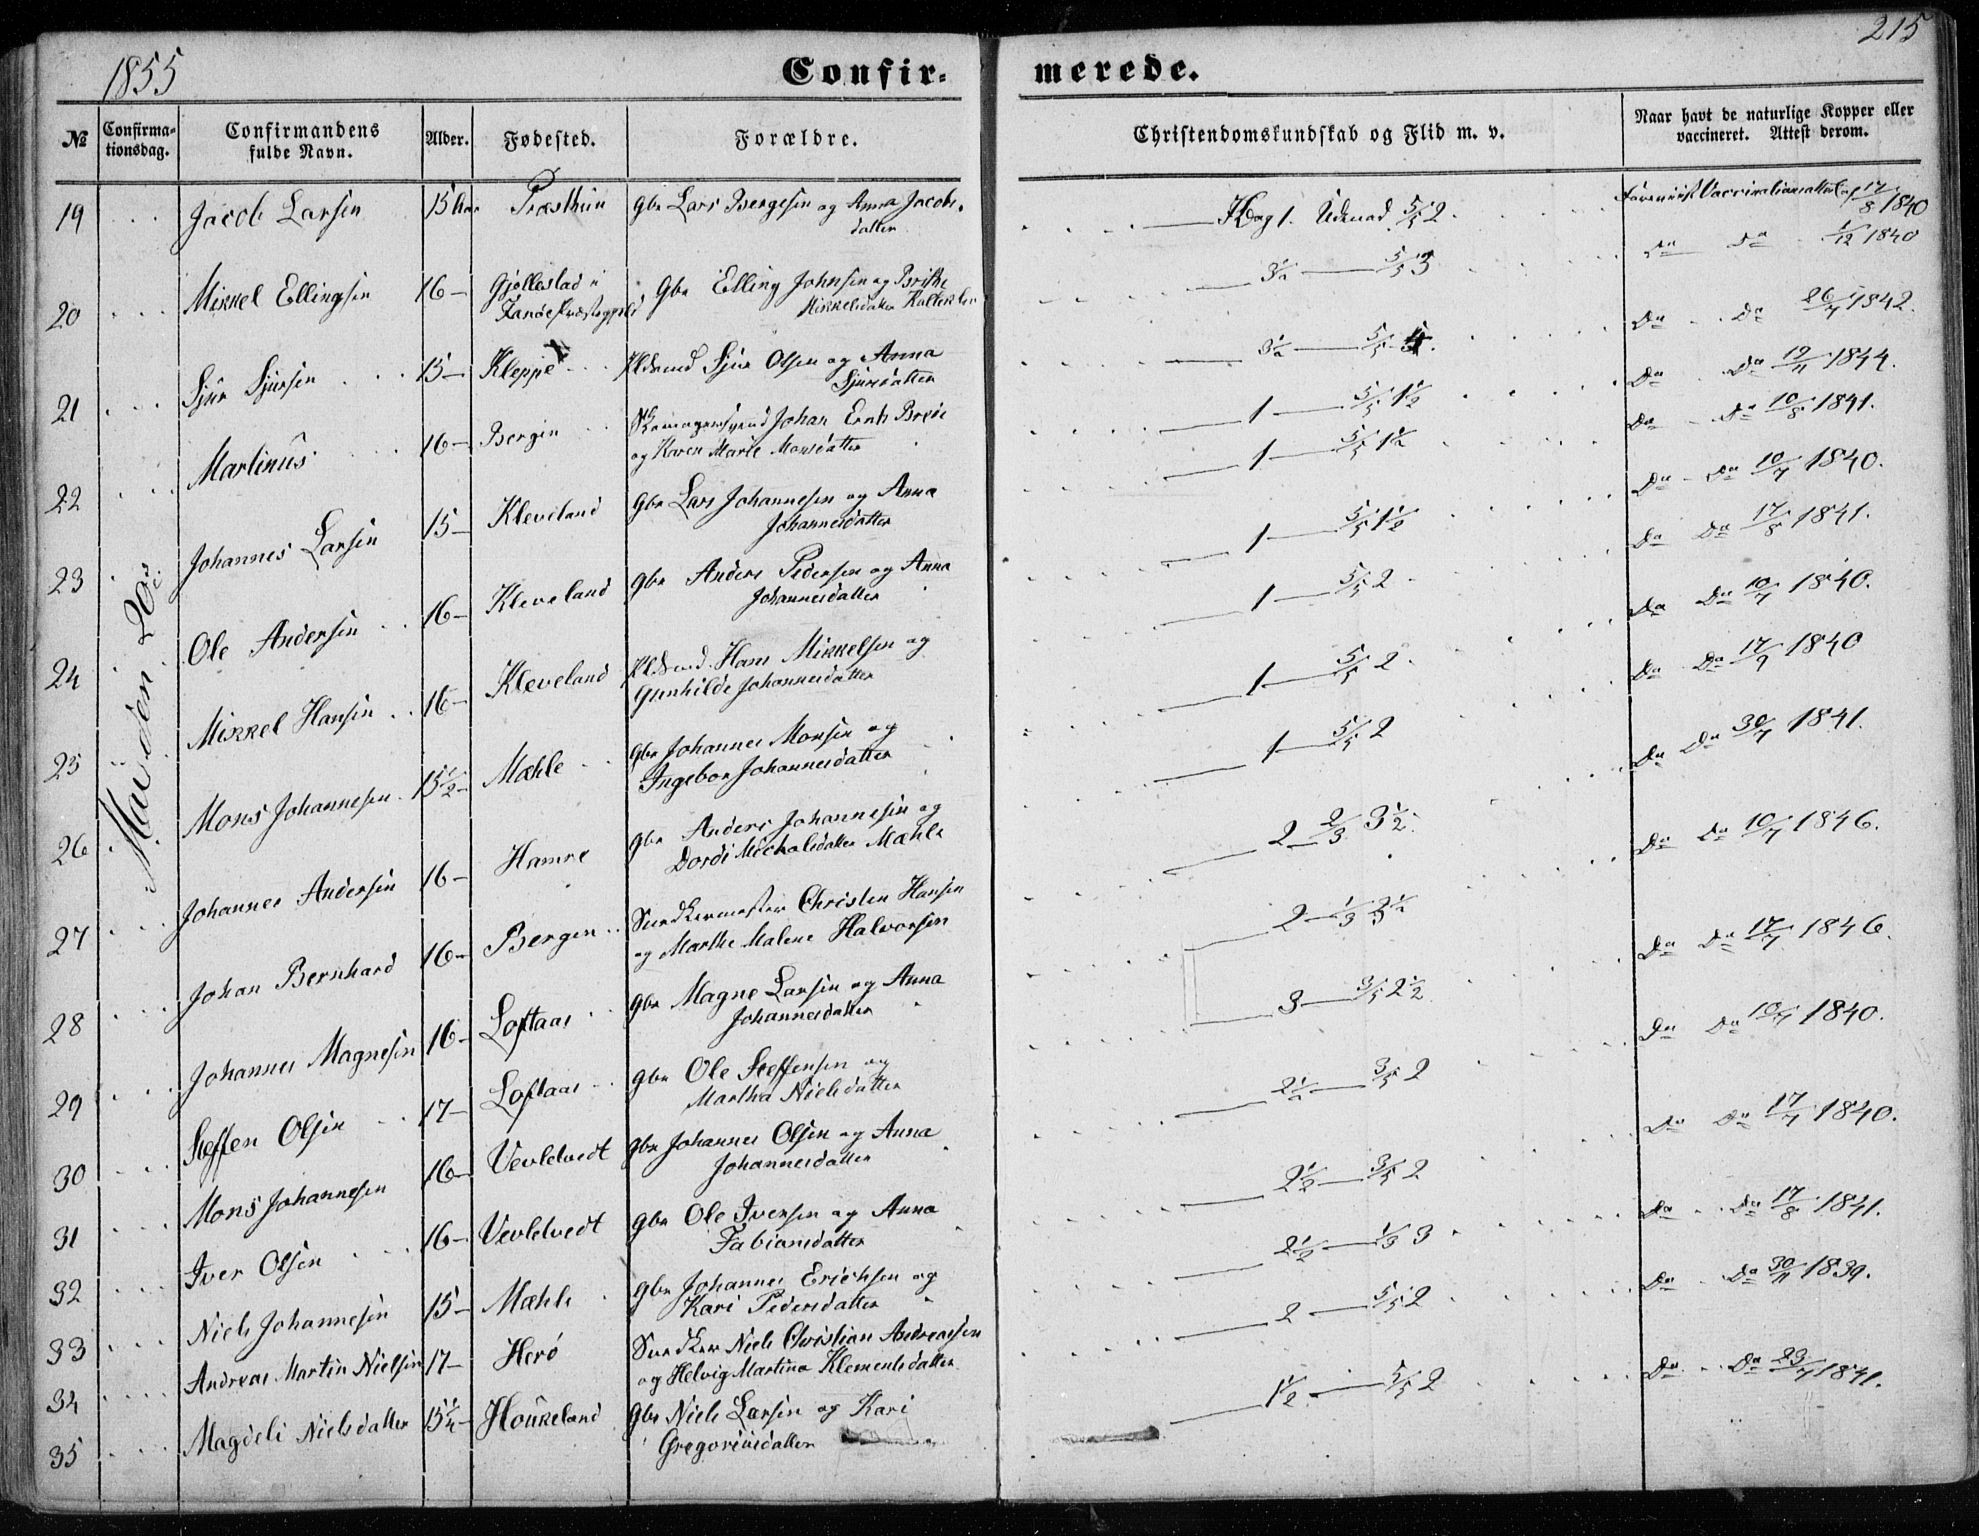 1855
Confir-
merede.
215
№ Confirma-tionsdag. Confirmandens fulde Navn. Alder. Fødested. Forældre. Christendomskundskab og Flid m. v. Naar havt de naturlige Kopper eller vaccineret. Attest derom.
Mai den 20de
19 Jacob Larsen 15 Præsthun Gbr Lars Bergesen og Anna Jacobs-
datter 1. Udmad 5/5 2 Vaccinationsattest af 17/8 1840
20 Mikkel Ellingsen 16 — Gjøllestad i Gbr Elling Johnsen og Brithe 3½ — 5/5 3 Do Do 1/12 1840
Fanøe Præstegjeld Mikkelsdatter
21 Sjur Sjursen 15 — Kleppe Sjur Olsen og Anna 3½ — 5/5 Do Do 26/7 1842.
Sjursdatter
22 Martinus 16 — Bergen Johan 1 — 5/5 1½ Do Do 19/11 1844.
og Karen Marie Monsdatter
23 Johannes Larsen 15 — Kleveland Gbr Lars Johannesen og Anna 1 — 5/5 1½ Do Do 10/8 1841.
Johannesdatter
24 Ole Andersen 16 — Kleveland Gbr Anders Pedersen og Anna 1 — 5/5 1½ Do Do 10/7 1840.
Johannesdatter
25 Mikkel Hansen 16 — Kleveland Hans Mikkelsen og 1 — 5/5 2 Do Do 17/8 1841.
Gunhilde Johannesdatter
26 Mons Johannesen 15½ — Mæhle Gbr Johannes Monsen og 1 — 5/5 2 Do Do 10/7 1840.
Ingebor Johannesdatter
27 Johannes Andersen 16 — Hamre Gbr Anders Johannesen og 1 — 5/5 2 Do Do 17/9 1840
Dordi Michelsdatter Mæhle
28 Johan Bernhard 16 — Bergen Christen Hansen 2 — 2/3 3½ Do Do 30/7 1841.
og Marthe Malene Halvorsen
29 Johannes Magnesen 16 — Loftaas Gbr Magne Larsen og Anna 2 — 1/3 3½ Do Do 10/7 1846.
Johannesdatter
30 Steffen Olsen 17 — Loftaas Gbr Ole Steffensen og 3 — 3/5 2½ Do Do 17/7 1846.
Martha Nielsdatter
31 Mons Johannesen 16 — Vevletvedt Gbr Johannes Olsen og Anna 2½ — 3/5 2 Do Do 10/7 1840.
Johannesdatter
32 Iver Olsen 16 — Vevletvedt Gbr Ole Iversen og Anna 2½ — 3/5 2 Do Do 17/7 1840.
Fabiansdatter
33 Niels Johannesen 15 — Mæhle Gbr Johannes Erichsen og 2½ — 1/3 3 Do Do 17/8 1841.
Kari Pedersdatter
34 Andreas Martin Nielsen 17 — Herø Niels Christian Andreasen 2 — 5/5 2 Do Do 30/11 1839.
og Helvig Martina Klementsdatter
35 Magdeli Nielsdatter 15¼ — Houkeland Gbr Niels Larsen og Kari 1½ — 5/5 2 Do Do 23/7 1841.
Gregoriusdatter